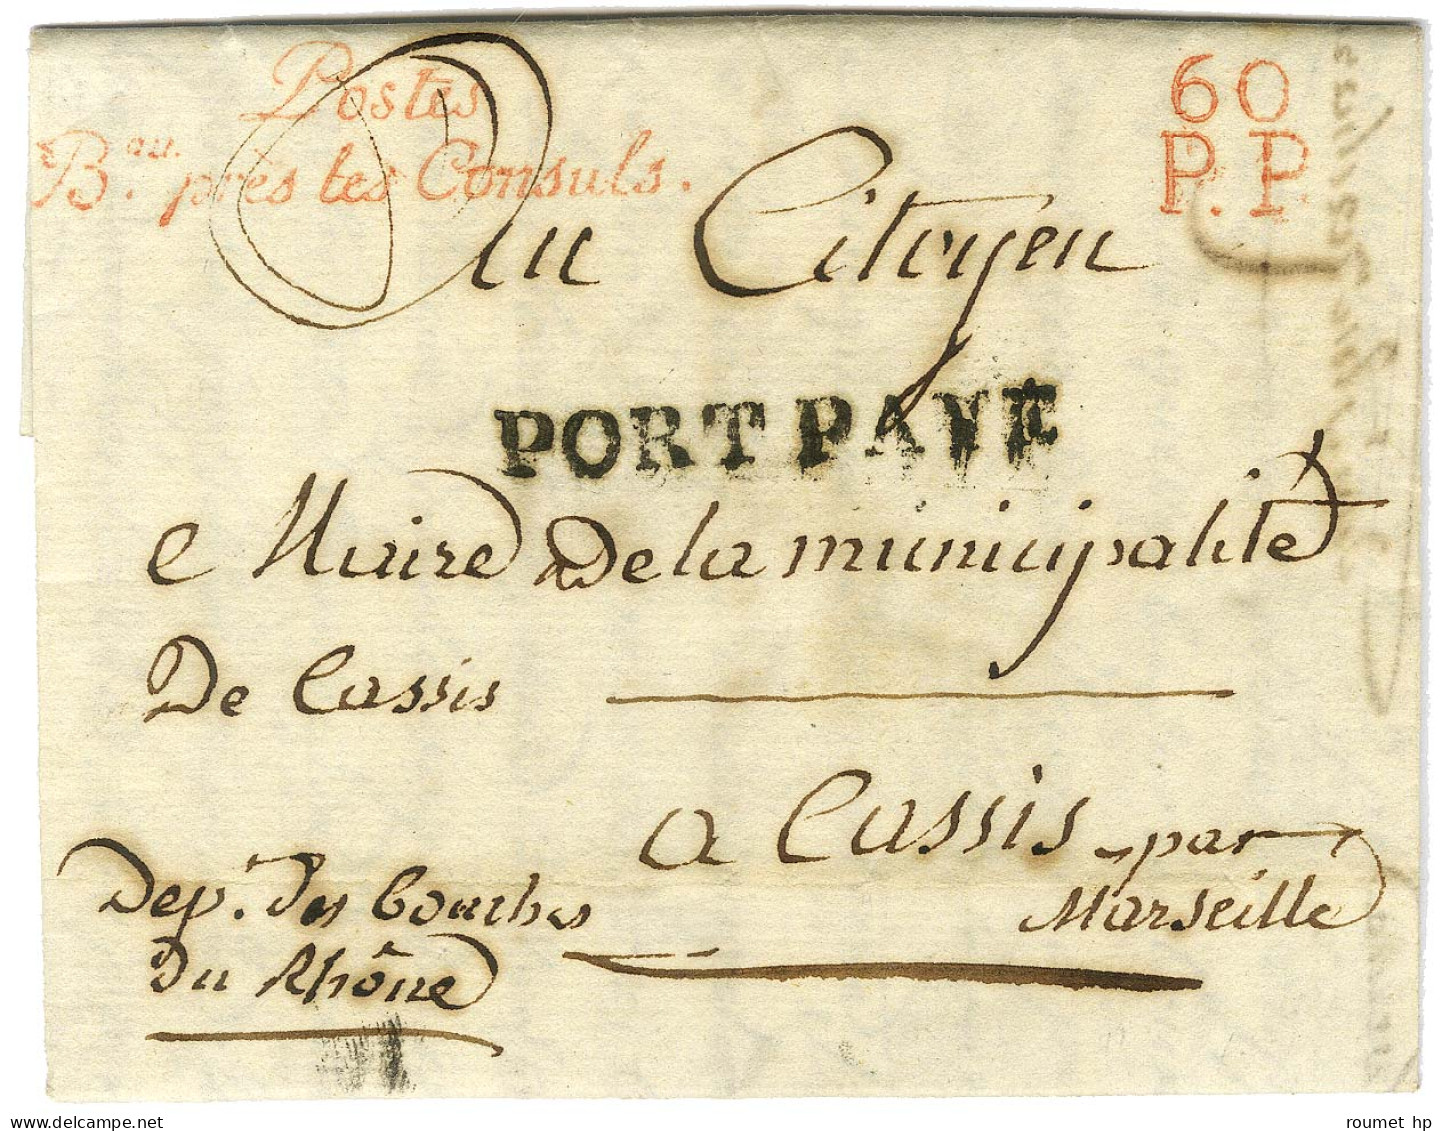 Postes
60
Bau. près les Consuls.
P.P.
Au Citoyen
PORT PAYÉ
e Maire De la municipalité
De Cassis
a Cassis par
Marseille
Dep. Des Bouches
Du Rhône
roumet hp